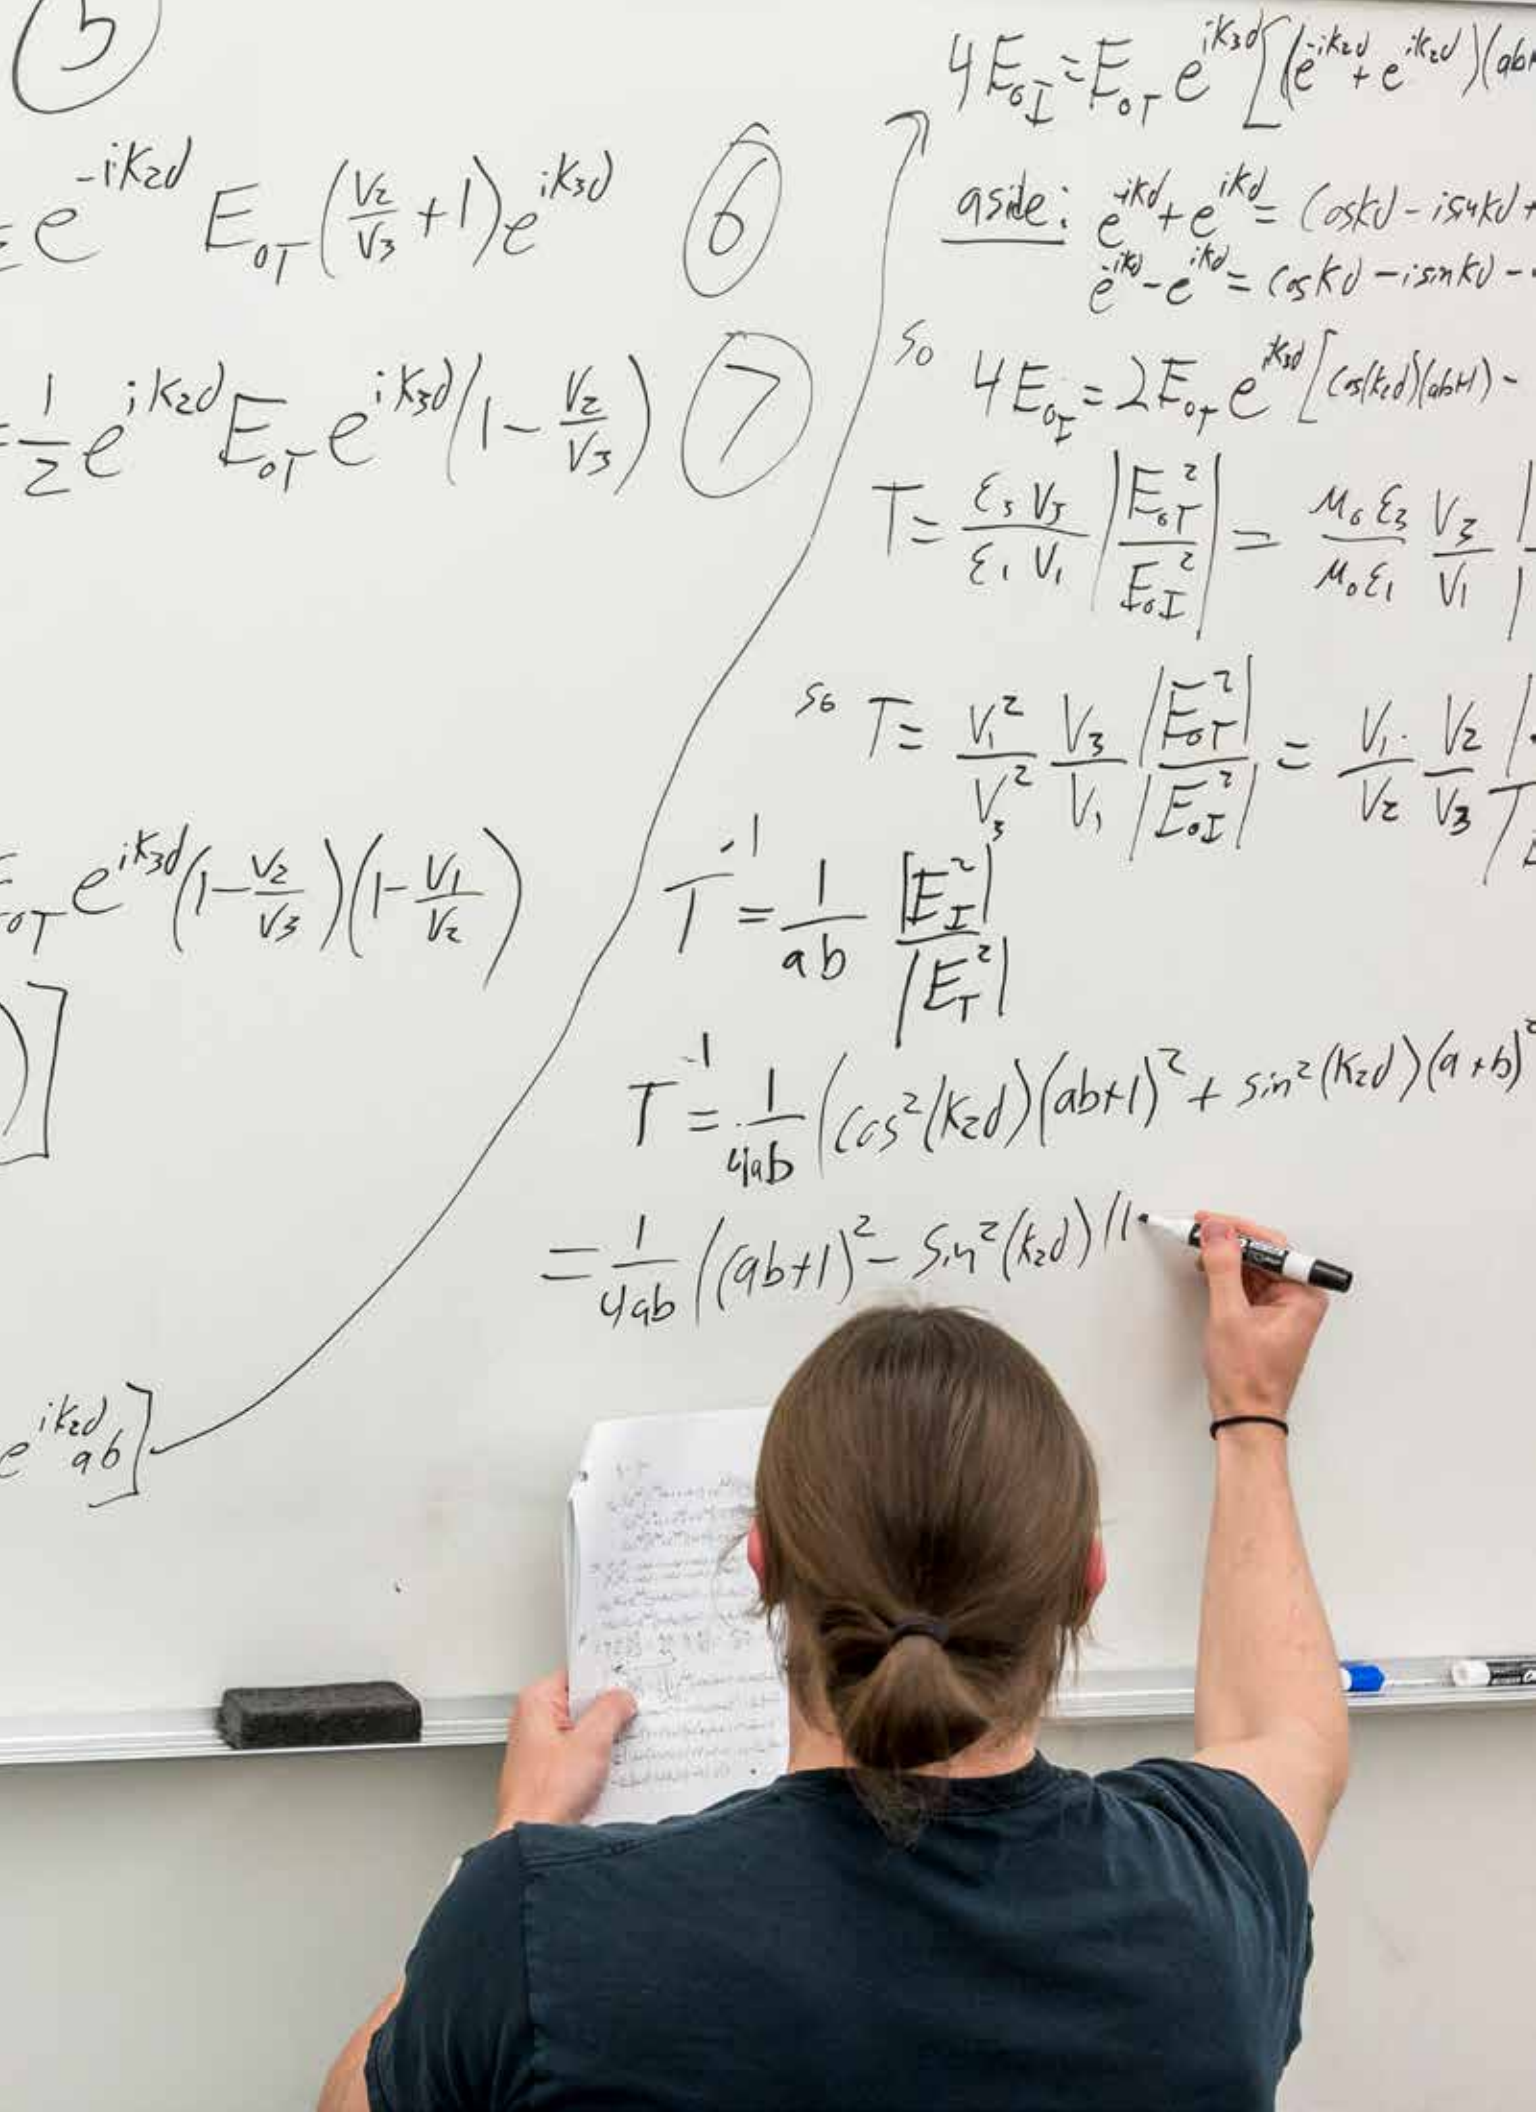 5
= e^{-ik₂d} E_{oT} (V₂/V₃ + 1) e^{ik₃d} ⑥
= 1/2 e^{ik₂d} E_{oT} e^{ik₃d} (1 - V₂/V₃) ⑦
E_{oT} e^{ik₃d} (1 - V₂/V₃)(1 - V₁/V₂)
)]
e^{ik₂d} ab]
4E_{oI} = E_{oT} e^{ik₃d} [(e^{-ik₂d} + e^{ik₂d})(ab+
aside: e^{-ikd} + e^{ikd} = coskd - isinkd +
e^{-ikd} - e^{ikd} = coskd - isinkd -
so 4E_{oI} = 2E_{oT} e^{ik₃d} [cos(k₂d)(ab+1) -
T = ε₃V₃/ε₁V₁ |E_{oT}²/E_{oI}²| = μ₀ε₃/μ₀ε₁ V₃/V₁ |
so T = V₁²/V₃² V₃/V₁ |E_{oT}²|/|E_{oI}²| = V₁/V₂ · V₂/V₃ |
T^{-1} = 1/ab |E_I²|/|E_T²|
T^{-1} = 1/4ab (cos²(k₂d)(ab+1)² + sin²(k₂d)(a+b)²
= 1/4ab ((ab+1)² - sin²(k₂d)((